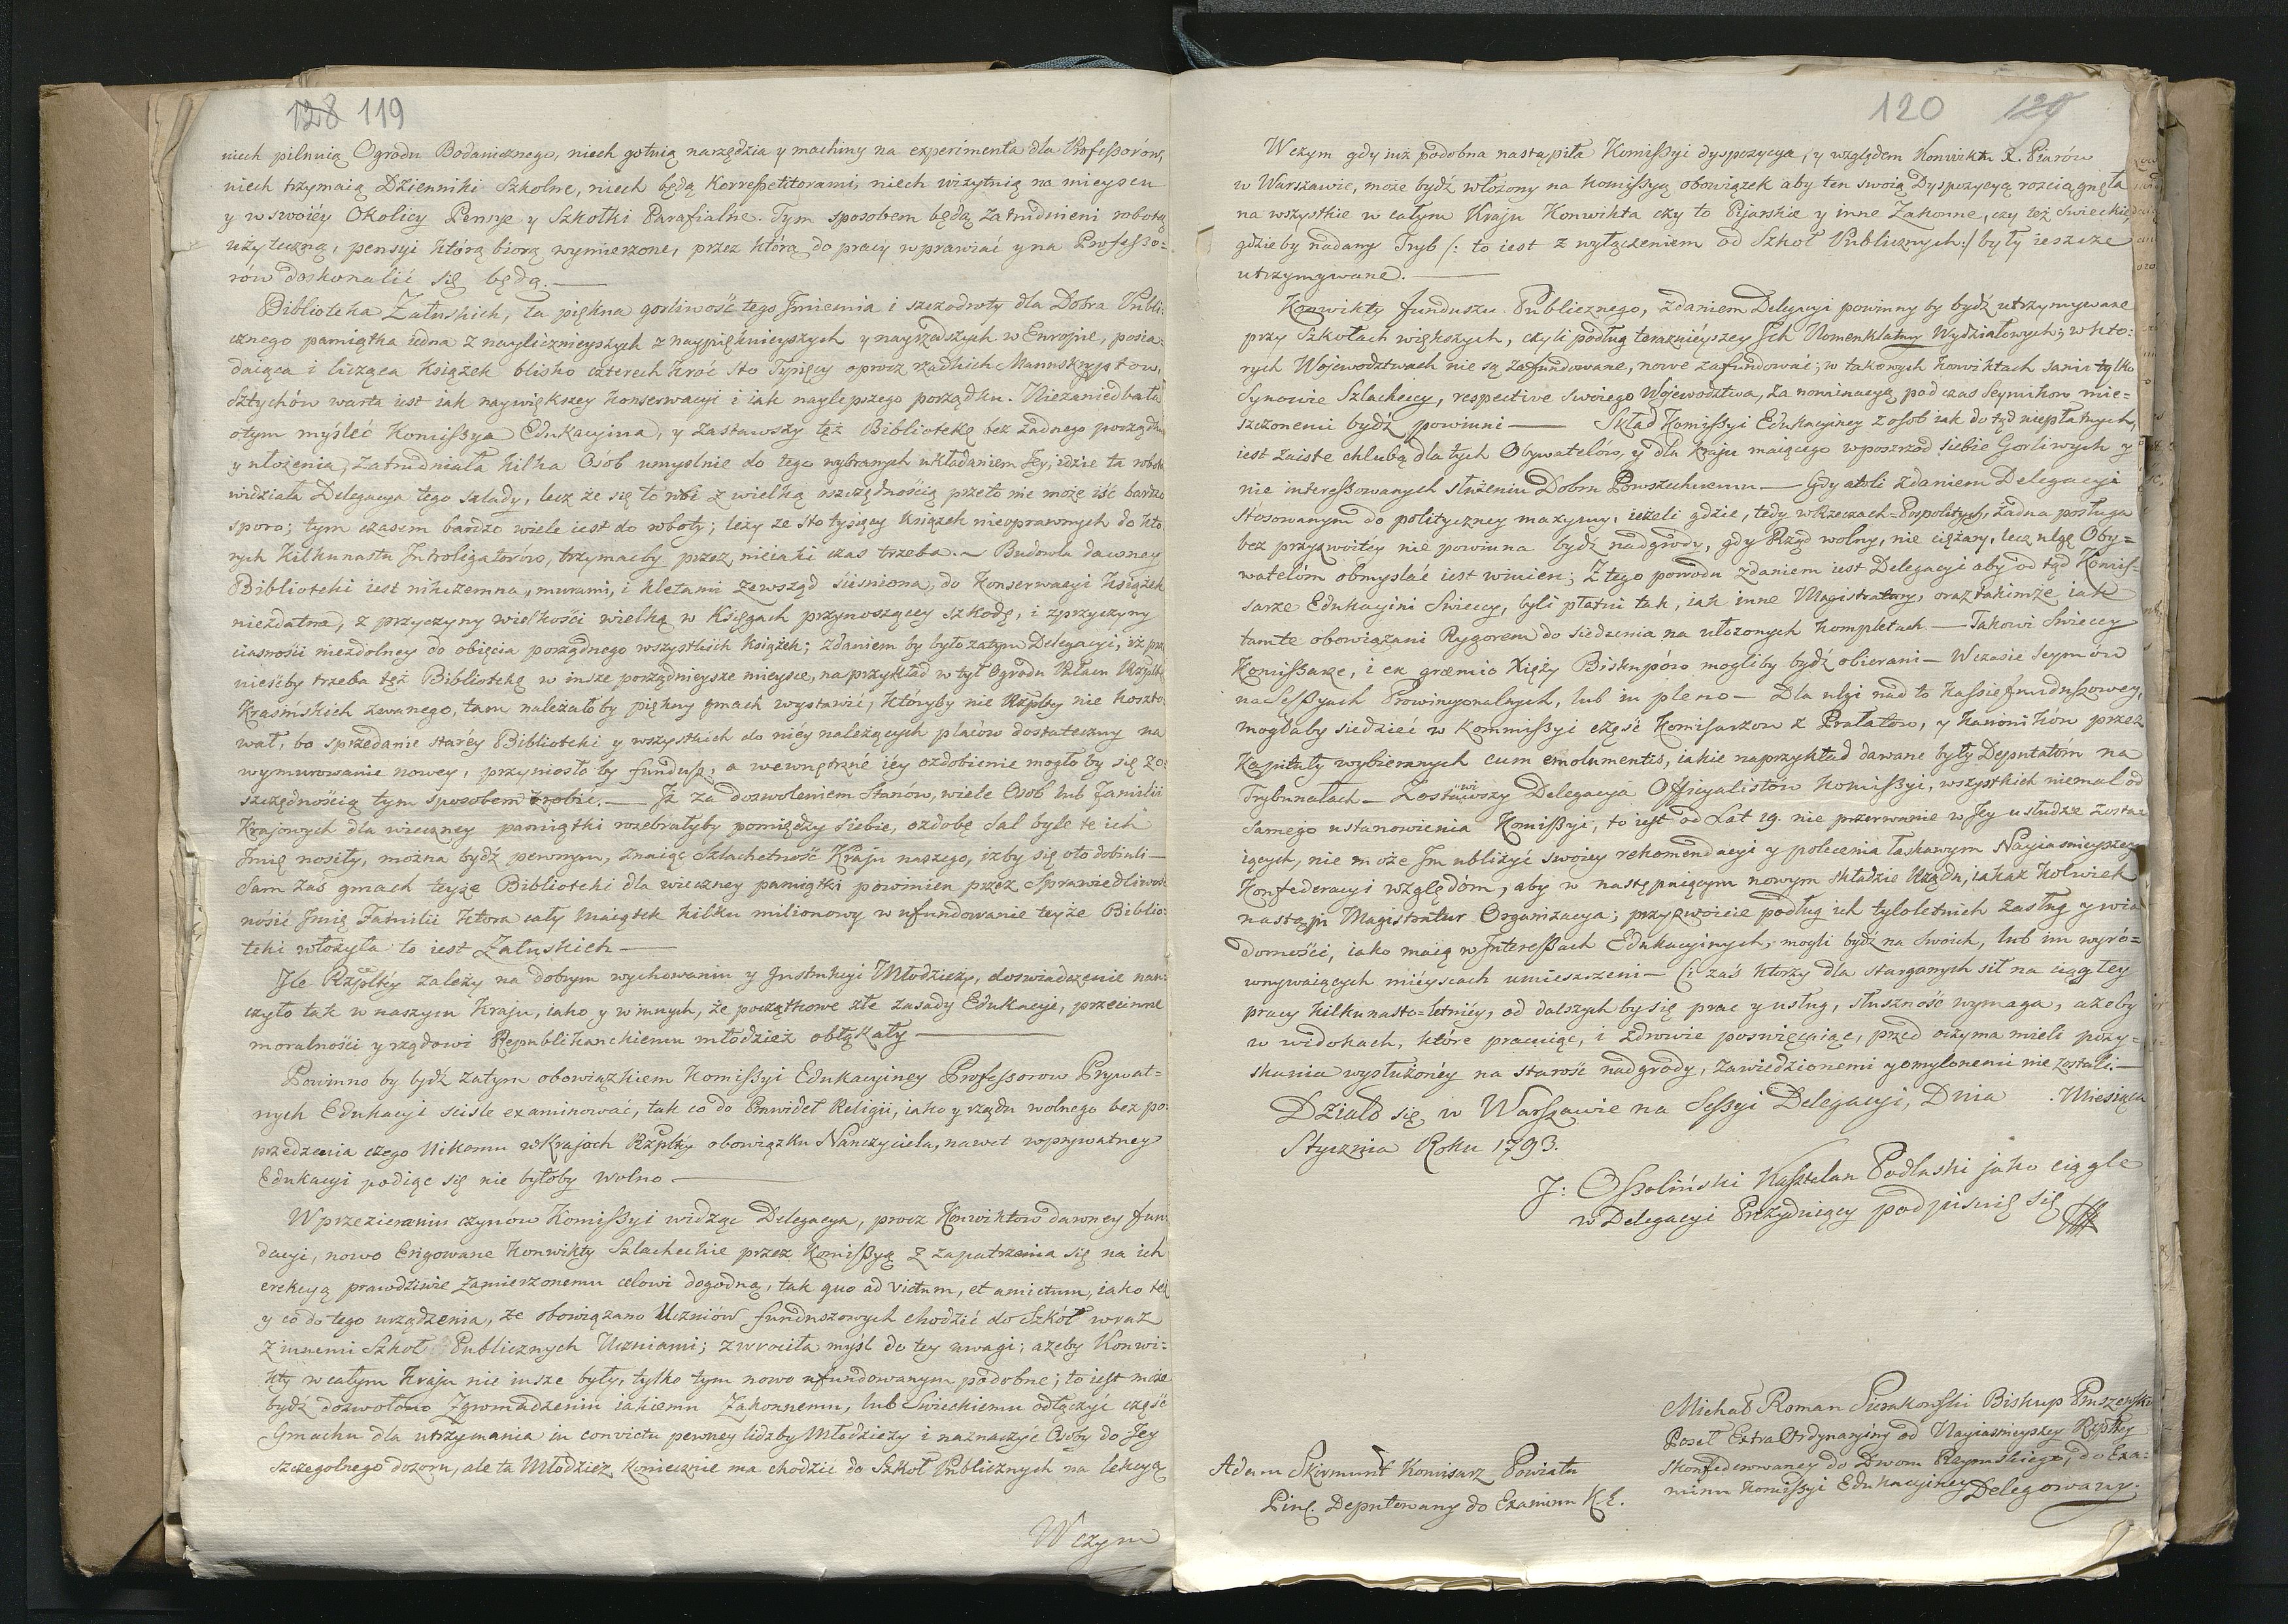 128 119
niech pilnuią Ogrodu Bodanicznego, niech gotuią narzędzia y machiny na experimenta dla Professorów,
niech trzymaią Dzienniki Szkolne, niech będą Korrepetitorami, niech wizytuią na mieyscu
y w swoiéy Okolicy Pensye y Szkołki Parafialne. Tym sposobem będą zatrudnieni robotą
użyteczną, pensyi którą biorą wymierzone, przez którą do pracy wprawiać y na Professo=
rów doskonalić się będą. —
Biblioteka Załuskich, ta piękna gorliwość tego Imienia i szczodroty dla Dobra Publi:
cznego pamiątka iedna z naylicznieyszych z naypięknieyszych y nayrzadszych w Europie, posia:
daiąca i licząca Książek blisko czterech kroć sto Tysięcy oprocz rzadkich Manuskryptow,
Sztychów warta iest iak naywiększey konserwacyi i iak naylepszego porządku. Niezaniedbała
otym myśleć Komissya Edukacyina, y zastawszy tęż Bibliotekę bez żadnego porządku
y ułożenia, zatrudniała kilka Osób umyslnie do tego wybranych układaniem Jey, idzie ta robota
widziała Delegacya tego szlady, lecz że się to robi z wielką oszczędnością przeto nie może iść bardzo
sporo; tym czasem bardzo wiele iest do roboty; leży ze sto tysięcy książek nieoprawnych do któ:
rych kilkunastu Introligatorów, trzymaćby przez nieiaki czas trzeba. ~ Budowla dawney
Biblioteki iest nikczemna, murami, i kletami zewsząd sciśniona, do konserwacyi książek
niezdatna, z przyczyny wielkości wielką w Księgach przynoszącey szkodę, i z przyczyny
ciasności niezdolney do obięcia porządnego wszystkich książek; zdaniem by było zatym Delegacyi, iż prze
nieśćby trzeba tęż Bibliotekę w insze porządnieysze mieysce, na przykład w tył Ogrodu Pałacu Rzplitéy
Krasińskich zwanego, tam należałoby piękny gmach wystawić, któryby nic Rzpltey nie koszto
wał, bo sprzedanie staréy Biblioteki y wszystkich do niéy należących placów dostateczny na
wymurowanie nowey, przyniosło by fundusz, a wewnętrzné iéy ozdobienie mogło by się z o:
szczędnością tym sposobem zrobić. — Iż za dozwoleniem Stanów, wiele Osob lub Familii
Krajowych dla wieczney pamiątki rozebrałyby pomiędzy siebie, ozdobę Sal byle te ich
Imię nosiły, można bydź pewnym, znaiąc Szlachetność Kraju naszego, iżby się oto dobiiali —
Sam zaś gmach teyże Biblioteki dla wieczney pamiątki powinien przez Sprawiedliwość
nosić Imię Familii która cały maiątek kilku milionowy w ufundowanie teyże Biblio:
teki włożyła to iest Załuskich —
Ile Rzpltéy zależy na dobrym wychowaniu y Instrukcyi Młodzieży, doswiadczenie nau:
czyło tak w naszym Kraju, iako y w innych, że początkowe złe zasady Edukacyi, przeciwne
moralności y rządowi Republikanckiemu młodzież obłąkały —
Powinno by bydź zatym obowiązkiem Komissyi Edukacyiney Professorow Prywat=
nych Edukacyi ściśle examinować, tak co do Prawideł Religii, iako y rządu wolnego bez po:
przedzenia czego Nikomu w Krajach Rzpltéy obowiązku Nauczyciela, nawet w prywatney
Edukacyi podiąć się nie byłoby wolno —
W przezieraniu czynów Komissyi widząc Delegacya, procz Konwiktow dawney fun
dacyi, nowo Erigowane Konwikty Szlacheckie przez Komissyą z zapatrzenia się na ich
erekcyą prawdziwie zamierzonemu celowi dogodną, tak quo ad victum, et amictum, iako też
y co do tego urządzenia, że obowiązano Uczniów funduszowych chodzić do Szkół wraz
z innemi Szkoł Publicznych Uczniami; zwrociła myśl do tey uwagi; ażeby Konwi=
kty w całym Kraju nie insze były, tylko tym nowo ufundowanym podobne; to iest może
bydź dozwolono Zgromadzeniu iakiemu Zakonnemu, lub Swieckiemu odłączyć część
Gmachu dla utrzymania in convictu pewney liczby Młodzieży i naznaczyć Osoby do Jey
szczegolnego dozoru, ale ta Młodzież koniecznie ma chodzić do Szkoł Publicznych na lekcyą
W czym
120
W czym gdy iuż podobna nastąpiła Komissyi dyspozycya, y względem Konwiktu X. Piarów
w Warszawie, może bydź włożony na Komissyą obowiązek aby ten swoią Dyspozycyą rozciągnęła
na wszystkie w całym Kraju Konwikta czy to Pijarskie y inne Zakonne, czy też Swieckie,
gdzieby nadany Tryb /: to iest z wyłączeniem od Szkoł Publicznych :/ były ieszcze
utrzymywane. —
Konwikty funduszu Publicznego, zdaniem Delegacyi powinny by bydź utrzymywane
przy Szkołach większych, czyli podług teraznieyszey Ich Nomenklatury Wydziałowych; w któ:
rych Województwach nie są zafundowane, nowe zafundować; w takowych Konwiktach sami tylko
Synowie Szlacheccy, respective swoiego Województwa, za nominacyą pod czas Seymikow mie=
szczonemi bydź powinni — Skład Komissyi Edukacyiney z osob iak dotąd niepłatnych,
iest zaiste chlubą dla tych Obywatelów, y dla kraju maiącego wposrzod siebie Gorliwych y
nie interessowanych służeniu Dobru Powszechnemu — Gdy atoli zdaniem Delegacyi
stosowanym do polityczney maxymy, ieżeli gdzie, tedy w Rzeczach=Pospolitych, żadna posługa
bez przyzwoitéy nie powinna bydź nadgrody, gdy Rząd wolny, nie ciężary, lecz ulgę Oby=
watelóm obmyslać iest winien; Z tego powodu zdaniem iest Delegacyi aby od tąd Komis=
sarze Edukacyini Swieccy, byli płatni tak, iak inne Magistratury, oraz takimże iak
tamte obowiązani Rygorem do siedzenia na ułożonych kompletach. — Takowi Swieccy
Komissarze, i ex gremio Xięży Biskupów mogliby bydź obierani — W czasie Seymów
na Sessyach Prowincyonalnych, lub in pleno — Dla ulgi nad to Kassie funduszowey,
mogłaby siedzieć w Kommissyi część Komisarzow z Prałatow, y Kanoników przez
Kapituły wybieranych cum emolumentis, iakie naprzykład dawane były Deputatóm na
Trybunałach — Zostawiwszy Delegacya Officyalistow Komissyi, wszystkich niemal od
samego ustanowienia Komissyi, to iest od Lat 19. nie przerwanie w Jey usłudze zosta:
iących, nie może Im ubliżyć swoiey rekomendacyi y polecenia łaskawym Nayiasnieyszey
Konfederacyi względóm, aby w następuiącym nowym składzie Rządu, iakaż kolwiek
nastąpi Magistratur Organizacya; przyzwoicie podług ich tyloletnich zasług y wia
domości, iako maią w Interessach Edukacyinych, mogli bydź na swoich, lub im wyró=
wnywaiących mieyscach umieszczeni — Ci zaś ktorzy dla starganych sił na ciągłey
pracy kilkunasto=letniéy, od dalszych by się prac y usług, słuszność wymaga, ażeby
w widokach, które pracuiąc, i zdrowie poswięcaiąc, przed oczyma mieli pozy=
skania wysłużonéy na starość nadgrody, zawiedzionemi y omylonemi nie zostali. —
Działo się w Warszawie na Sessyi Delegacyi, Dnia . Miesiąca
Stycznia Roku 1793.
J: Ossoliński Kasztelan Podlaski jako ciągle
w Delegacyi Prezyduiący podpisuię się
Michał Roman Sierakowski Biskup Pruszeński
Poseł ExtraOrdynaryiny od Nayiasnieyszey Rzpltey
Skonfederowaney do Dworu Rzymskiego, do Exa:
minu Komissyi Edukacyiney Delegowany.
Adam Skirmunt Komisarz Powiatu
Piń. Deputowany do Examinu K.E.